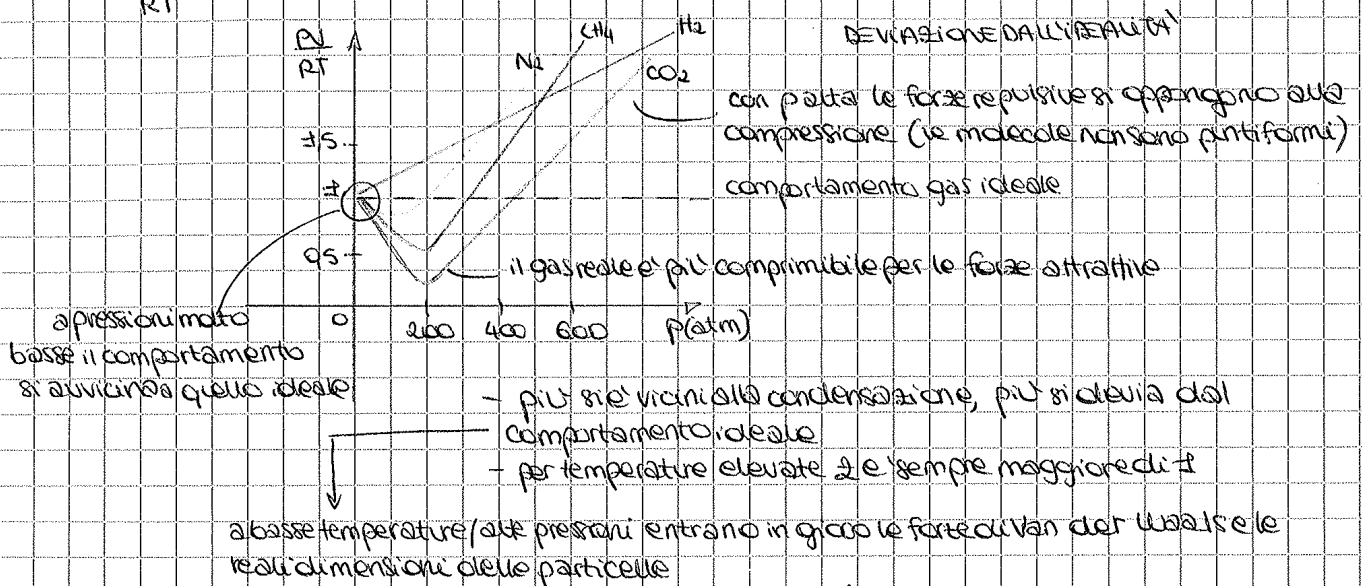 RT
PV
RT
N2
CH4
H2
CO2
DEVIAZIONE DALL'IDEALITÀ
con p alta le forze repulsive si oppongono alla
compressione (le molecole non sono puntiformi)
1,5
1
comportamento gas ideale
0,5
il gas reale e' più comprimibile per le forze attrattive
0
200
400
600
p(atm)
a pressioni molto
basse il comportamento
si avvicina a quello ideale
- più si e' vicini alla condensazione, più si devia dal
comportamento ideale
- per temperature elevate z e' sempre maggiore di 1
a basse temperature/alte pressioni entrano in gioco le forze di Van der Waals e le
reali dimensioni delle particelle